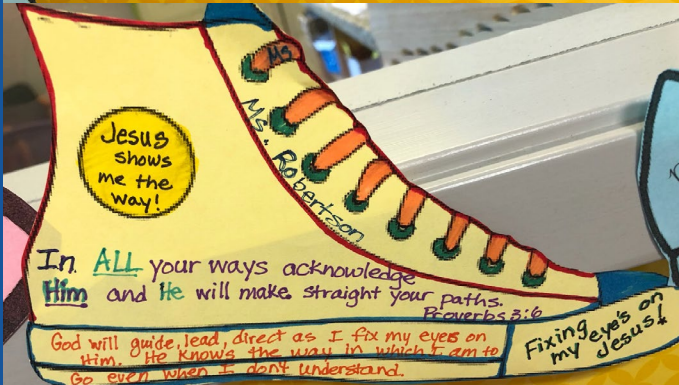 Ms
Ms. Robertson
Jesus
shows
me the
way!
In ALL your ways acknowledge
Him and He will make straight your paths.
Proverbs 3:6
God will guide, lead, direct as I fix my eyes on
Him. He knows the way in which I am to
Go even when I don't understand.
Fixing
my eye's on
Jesus!